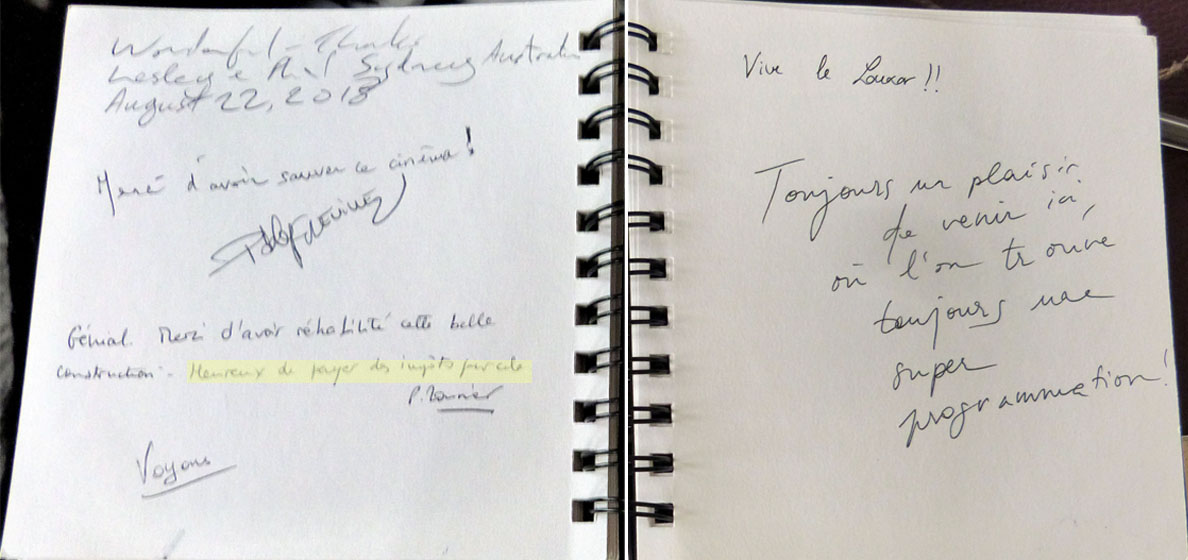 Wonderful - Thanks
Lesley & Phil Sydney Australia
August 22, 2018
Merci d'avoir sauver ce cinéma !
Génial. Merci d'avoir réhabilité cette belle
construction. Heureux de payer des impôts pour cela
P.
Voyons
Vive le Louxor !!
Toujours un plaisir
de venir ici,
où l'on trouve
toujours une
super
programmation !